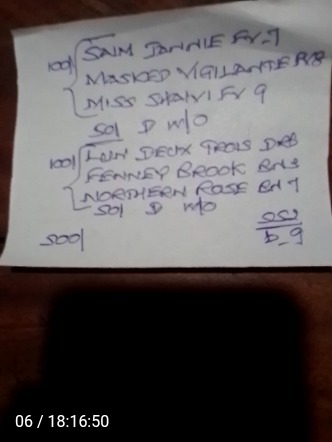 100/ SAIM JANNIE Fv-7
MASKED VIGILANTE
MISS SHAIVI Fv 9
50/ D w/o
100/ LUN DEUX TROIS
FENNEY BROOK
NORTHERN ROSE
50/ D w/o
500/
06 / 18:16:50